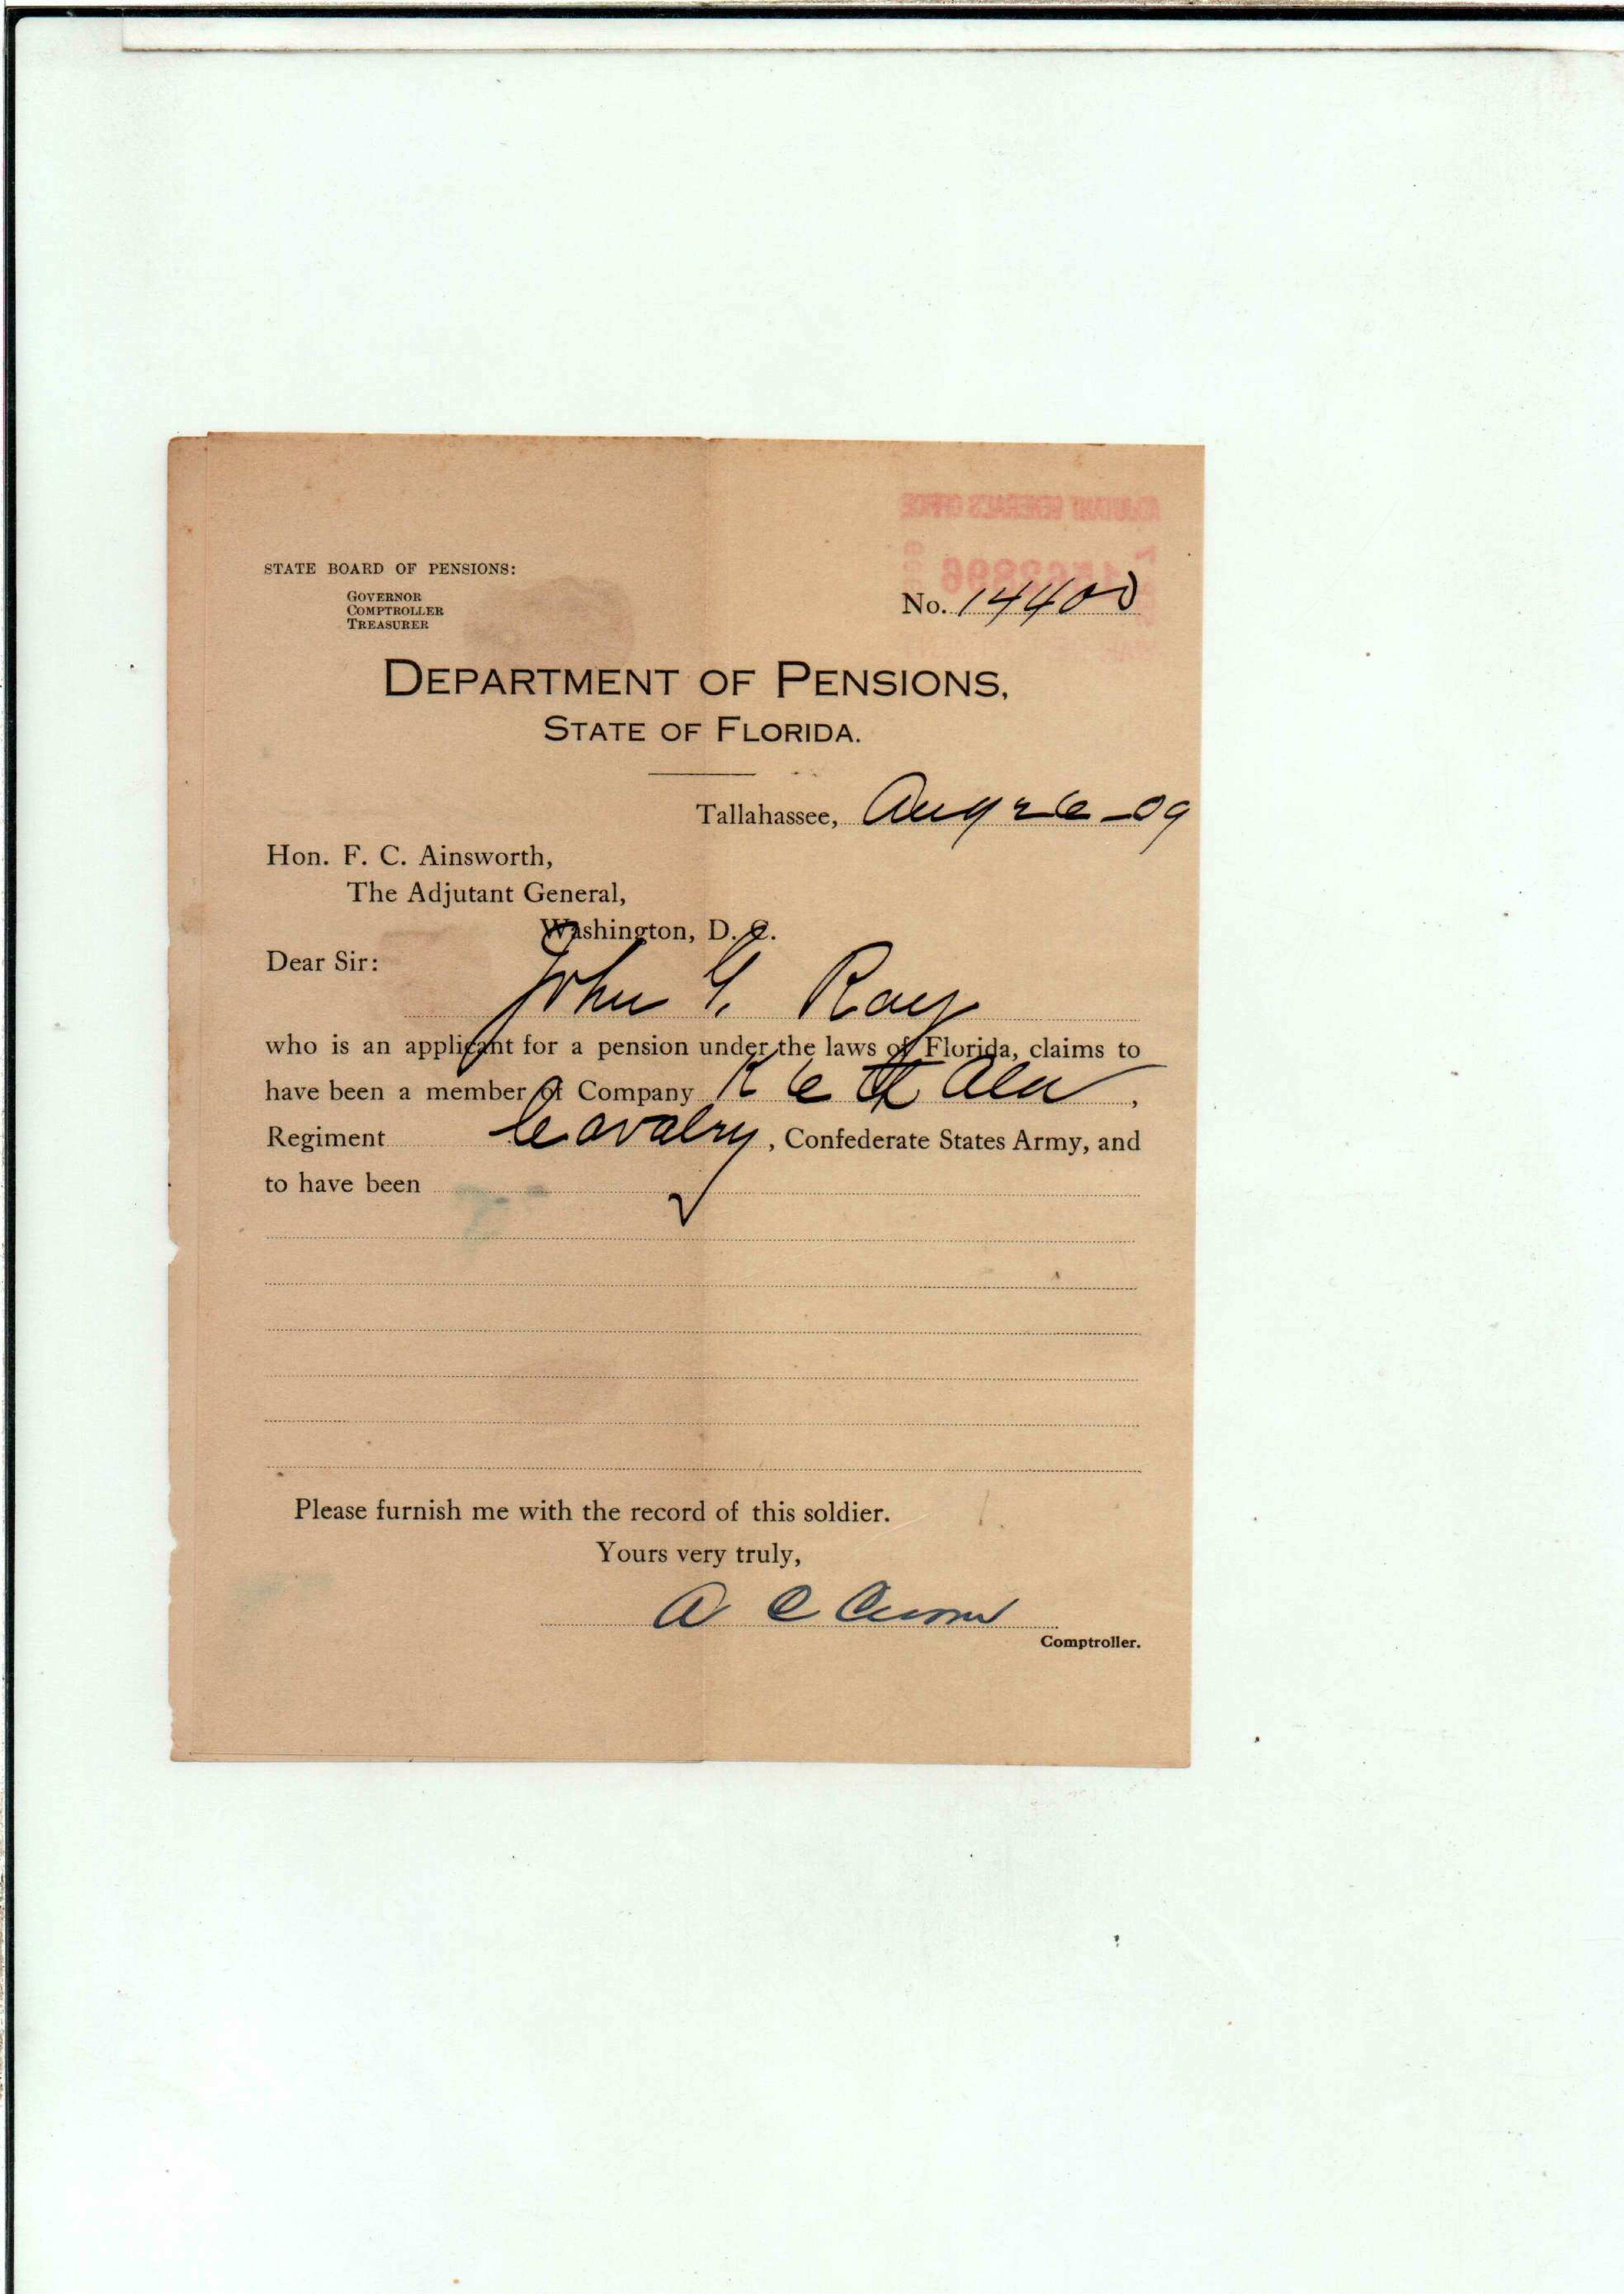 ADJUTANT GENERAL'S OFFICE
STATE BOARD OF PENSIONS:
GOVERNOR
COMPTROLLER
TREASURER
No. 14400
DEPARTMENT OF PENSIONS,
STATE OF FLORIDA.
Tallahassee, Aug 26-09
Hon. F. C. Ainsworth,
The Adjutant General,
Washington, D. C.
Dear Sir:
John G. Ray
who is an applicant for a pension under the laws of Florida, claims to
have been a member of Company K 6 th Ala,
Regiment Cavalry, Confederate States Army, and
to have been
Please furnish me with the record of this soldier.
Yours very truly,
A C Croom
Comptroller.